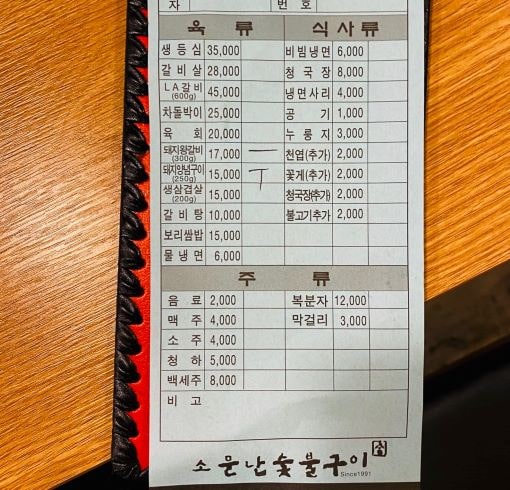 자 번 호
육 류 식 사 류
생등심 35,000 비빔냉면 6,000
갈비살 28,000 청국장 8,000
LA갈비 (600g) 45,000 냉면사리 4,000
차돌박이 25,000 공 기 1,000
육 회 20,000 누룽지 3,000
돼지왕갈비 (300g) 17,000 一 천엽(추가) 2,000
돼지양념구이 (250g) 15,000 丅 꽃게(추가) 2,000
생삼겹살 (200g) 15,000 청국장(추가) 2,000
갈비탕 10,000 불고기추가 2,000
보리쌈밥 15,000
물냉면 6,000
주 류
음 료 2,000 복분자 12,000
맥 주 4,000 막걸리 3,000
소 주 4,000
청 하 5,000
백세주 8,000
비 고
소문난숯불구이
Since1991